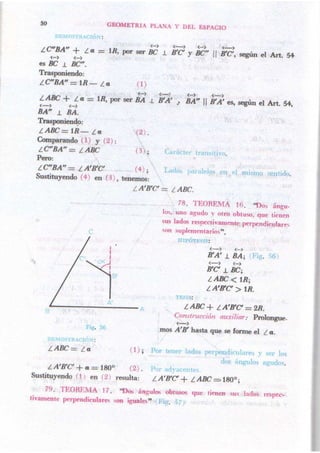 50 GEOMETRIA PLANA Y DEL ESPACIO
DEMOSTRACIÓN:
∠C"BA" + ∠a = 1R, por ser BC ⊥ B'C' y BC" || B'C', según el Art. 54
es BC ⊥ BC".
Trasponiendo:
∠C"BA" = 1R — ∠a (1)
∠ABC + ∠a = 1R, por ser BA ⊥ B'A' y BA" || B'A' es, según el Art. 54,
BA" ⊥ BA.
Trasponiendo:
∠ABC = 1R — ∠a (2).
Comparando (1) y (2):
∠C"BA" = ∠ABC (3); Carácter transitivo.
Pero:
∠C"BA" = ∠A'B'C' (4); Lados paralelos en el mismo sentido.
Sustituyendo (4) en (3), tenemos:
∠A'B'C' = ∠ABC.
78. TEOREMA 16. "Dos ángu-
los, uno agudo y otro obtuso, que tienen
sus lados respectivamente perpendiculares
son suplementarios".
HIPÓTESIS:
B'A' ⊥ BA; (Fig. 56)
B'C' ⊥ BC;
∠ABC < 1R;
∠A'B'C' > 1R.
TESIS:
∠ABC + ∠A'B'C' = 2R.
Construcción auxiliar: Prolongue-
mos A'B' hasta que se forme el ∠a.
C
C'
B'
B
A'
A
Fig. 56
DEMOSTRACIÓN:
∠ABC = ∠a (1); Por tener lados perpendiculares y ser los
dos ángulos agudos.
∠A'B'C' + a = 180° (2). Por adyacentes.
Sustituyendo (1) en (2) resulta: ∠A'B'C' + ∠ABC = 180°;
79. TEOREMA 17. "Dos ángulos obtusos que tienen sus lados respec-
tivamente perpendiculares son iguales" (Fig. 57)